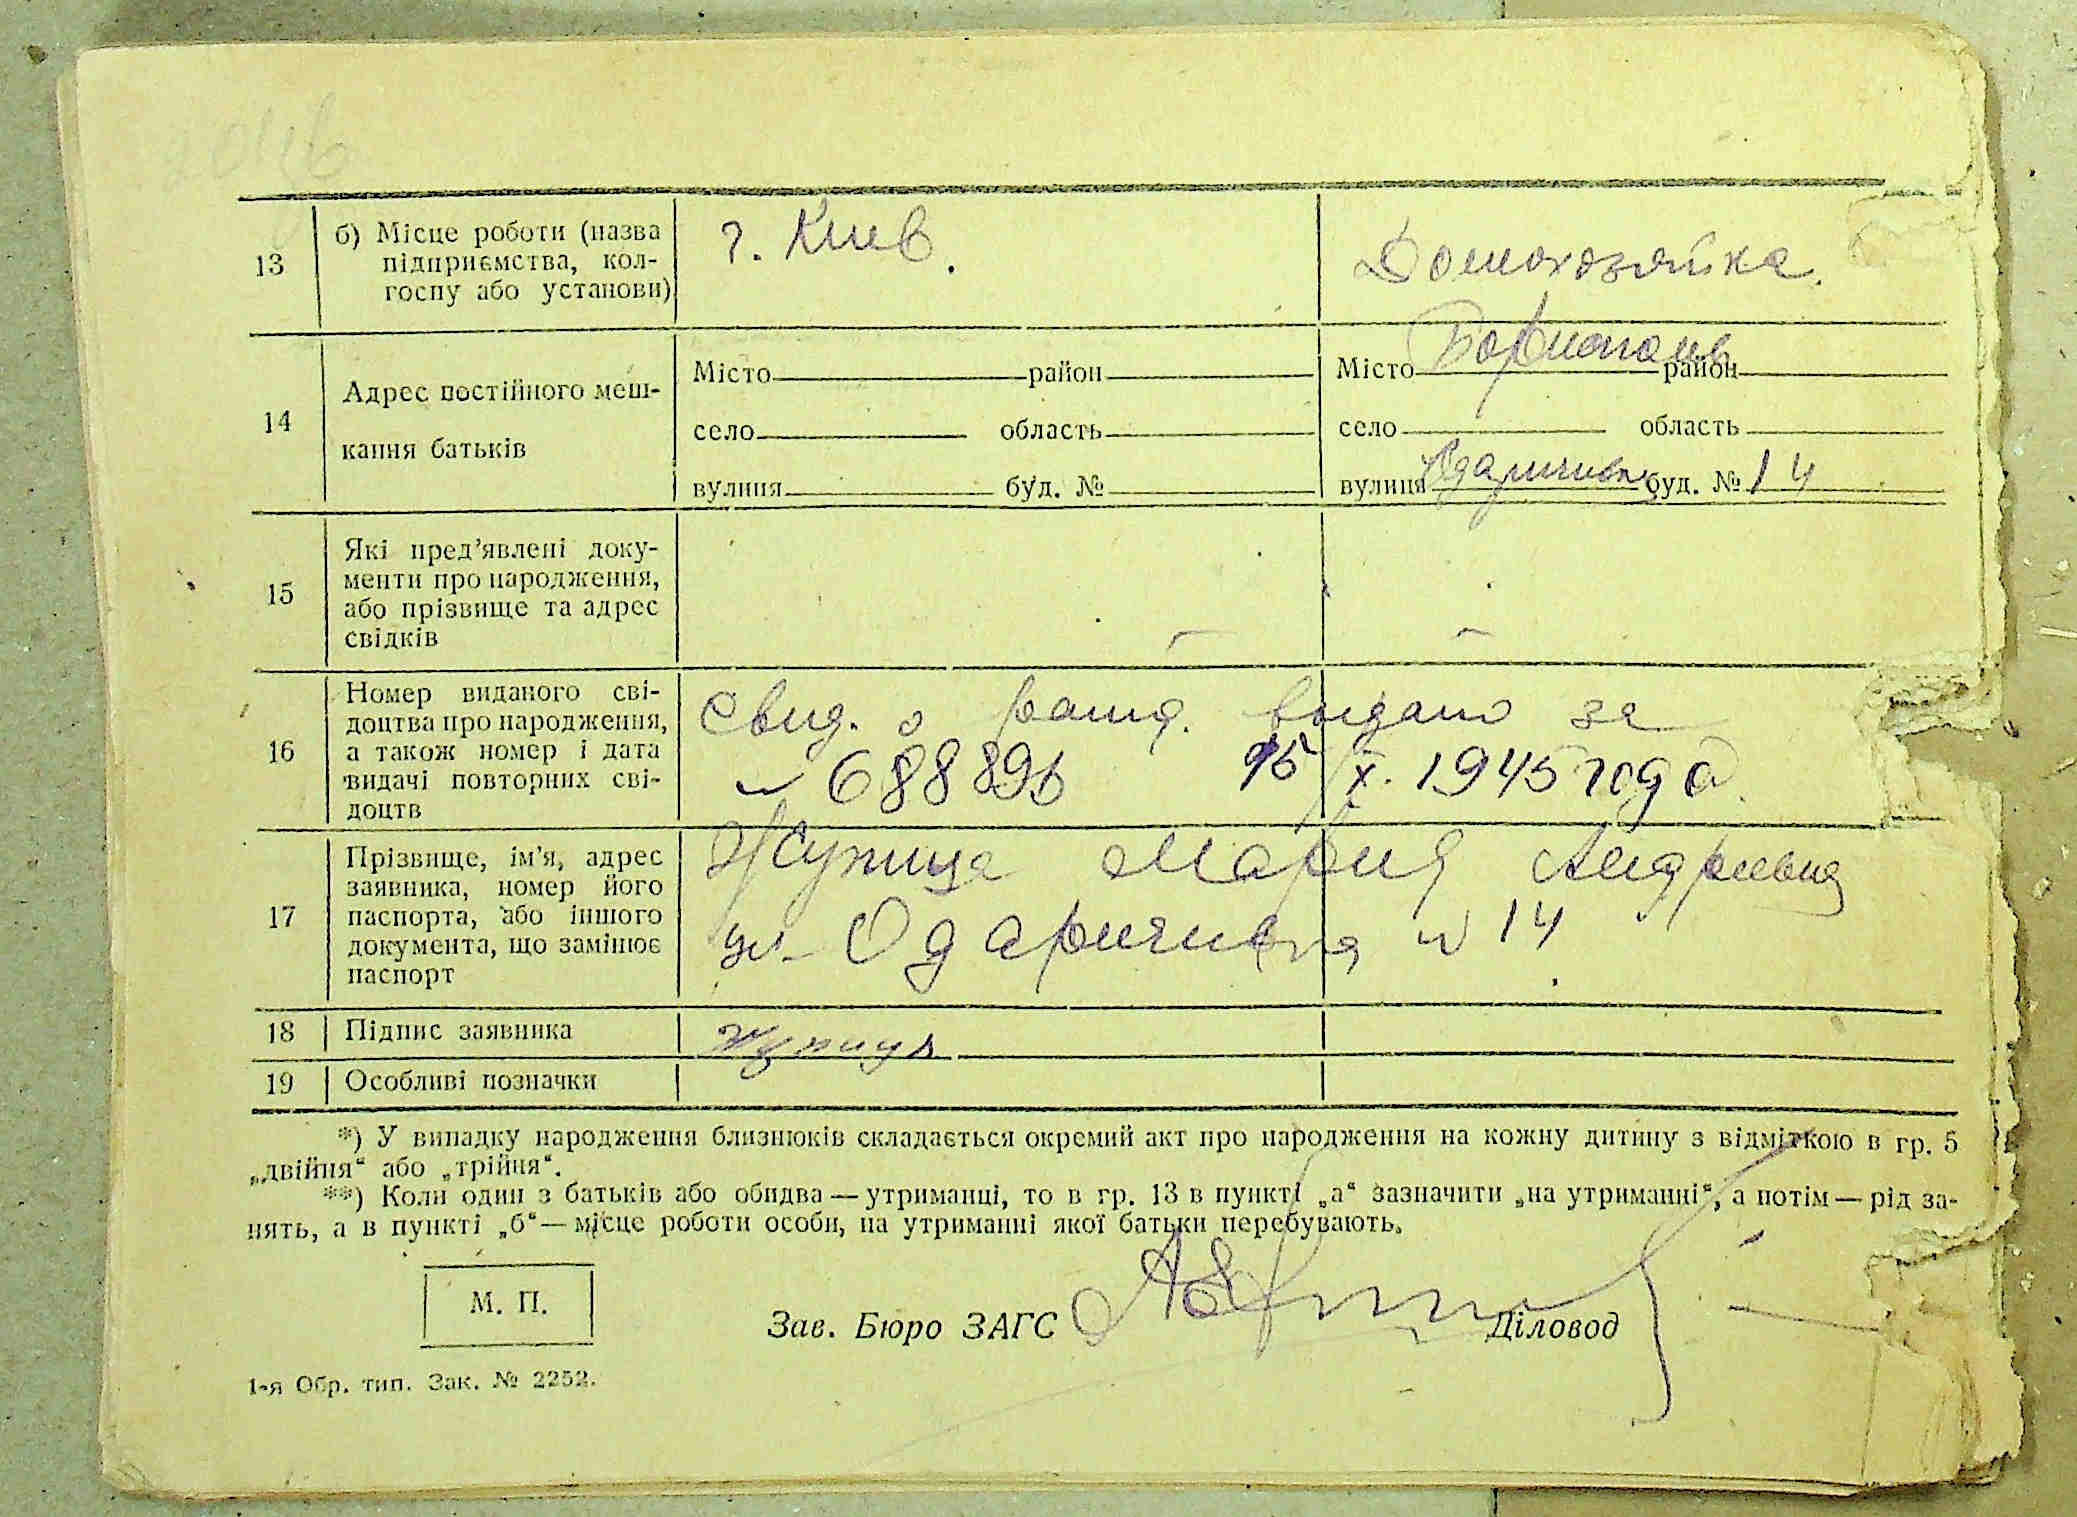 13
б) Місце роботи (назва
підприємства, кол-
госпу або установи)
г. Киев.
Домохозяйка.
14
Адрес постійного меш-
кання батьків
Місто район
село область
вулиця буд. №
Місто Борисполь район
село область
вулиця буд. № 14
15
Які пред’явлені доку-
менти про народження,
або прізвище та адрес
свідків
16
Номер виданого сві-
доцтва про народження,
а також номер і дата
видачі повторних сві-
доцтв
Свид. о рожд. выдано за
№ 688896 15/X. 1945 года
17
Прізвище, ім’я, адрес
заявника, номер його
паспорта, або іншого
документа, що замінює
паспорт
Жупица Мария Андреевна
ул. № 14
18
Підпис заявника
Жупица
19
Особливі позначки
*) У випадку народження близнюків складається окремий акт про народження на кожну дитину з відміткою в гр. 5
„двійня“ або „трійня“.
**) Коли один з батьків або обидва — утриманці, то в гр. 13 в пункті „а“ зазначити „на утриманні“, а потім — рід за-
нять, а в пункті „б“ — місце роботи особи, на утриманні якої батьки перебувають.
М. П.
Зав. Бюро ЗАГС
Діловод
1-я Обр. тип. Зак. № 2252.